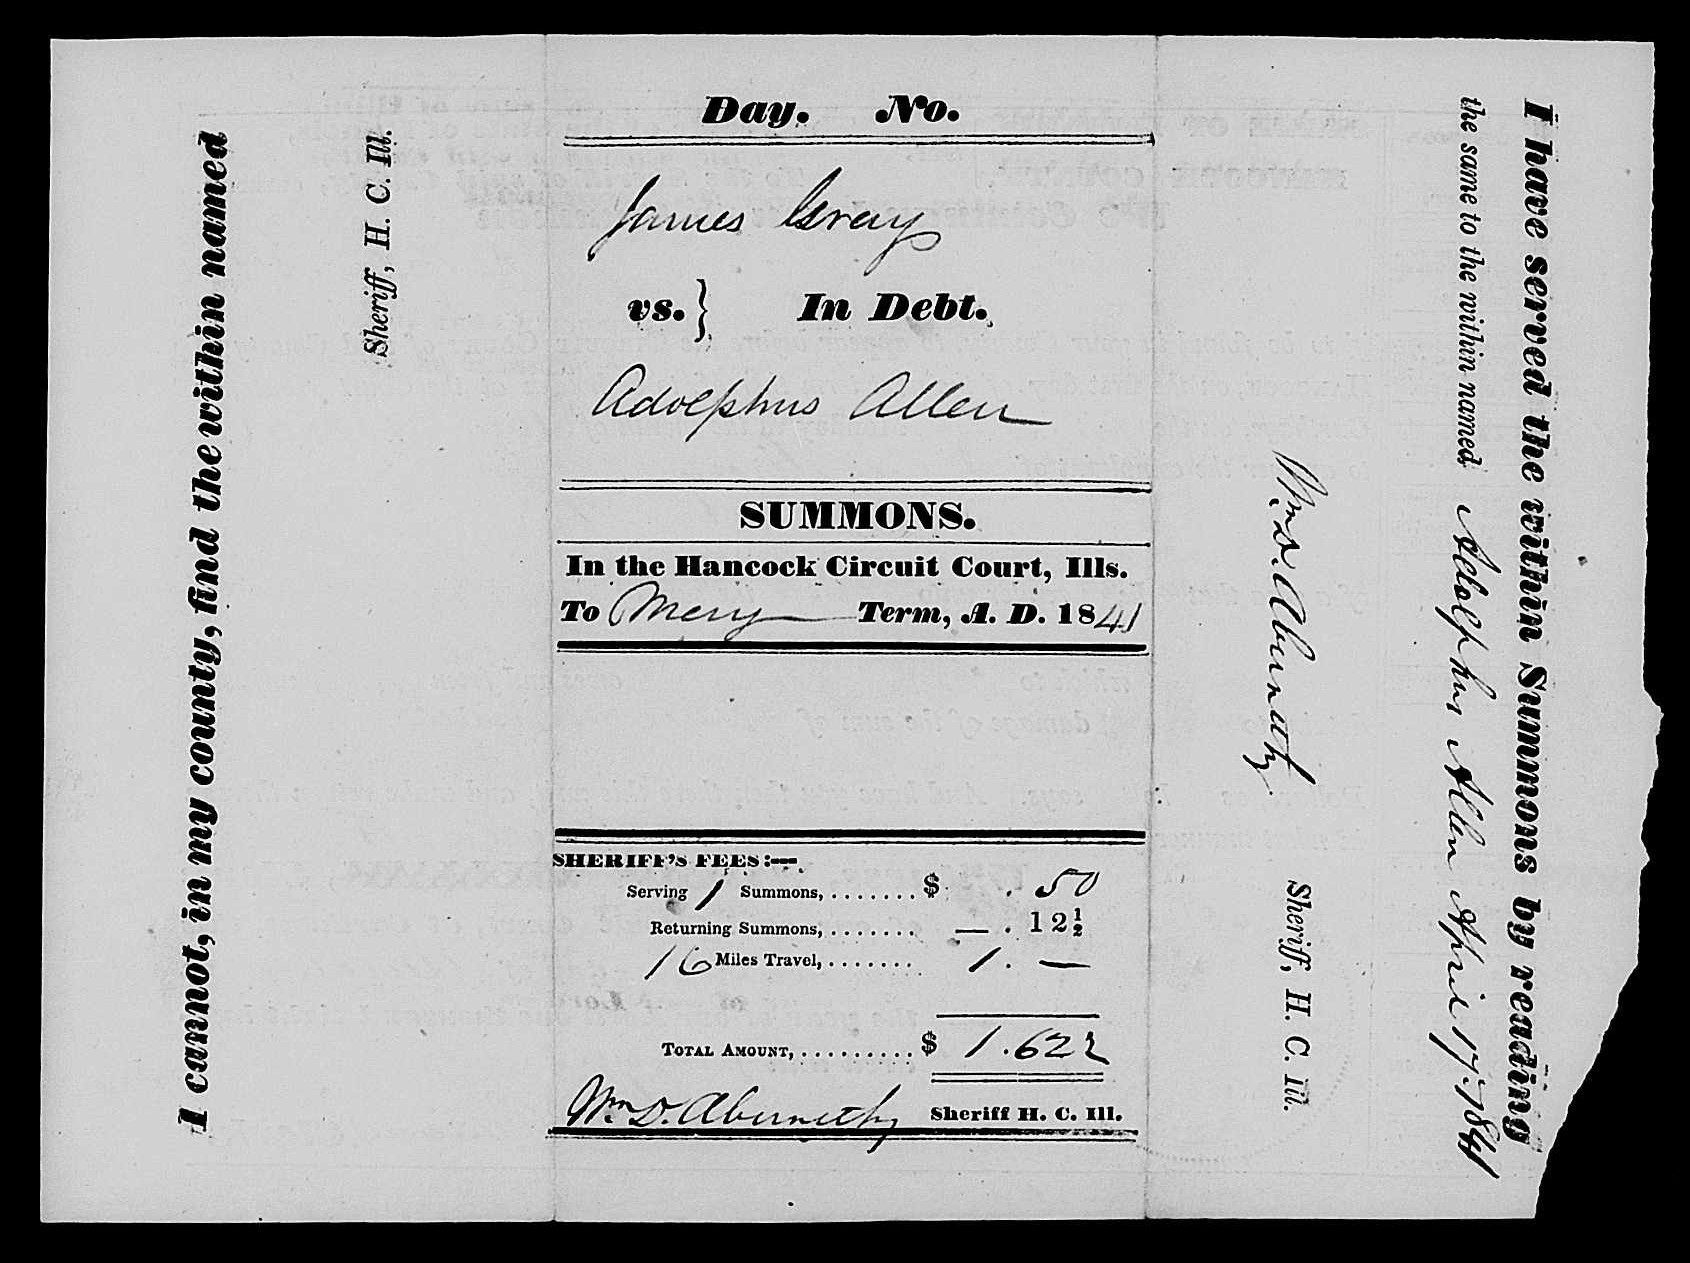 I cannot, in my county, find the within named
Sheriff, H. C. Ill.
Day. No.
James Gray
vs. } In Debt.
Adolphus Allen
SUMMONS.
In the Hancock Circuit Court, Ills.
To May Term, A. D. 1841
SHERIFF'S FEES:—
Serving 1 Summons, . . . . . . . $ . 50
Returning Summons, . . . . . . . — . 12½
16 Miles Travel, . . . . . . . 1 . —
TOTAL AMOUNT, . . . . . . . . . $ 1.62½
Wm D. Abernethy Sheriff H. C. Ill.
I have served the within Summons by reading
the same to the within named Adolphus Allen April 17. 1841
Wm D. Abernethy Sheriff, H. C. Ill.